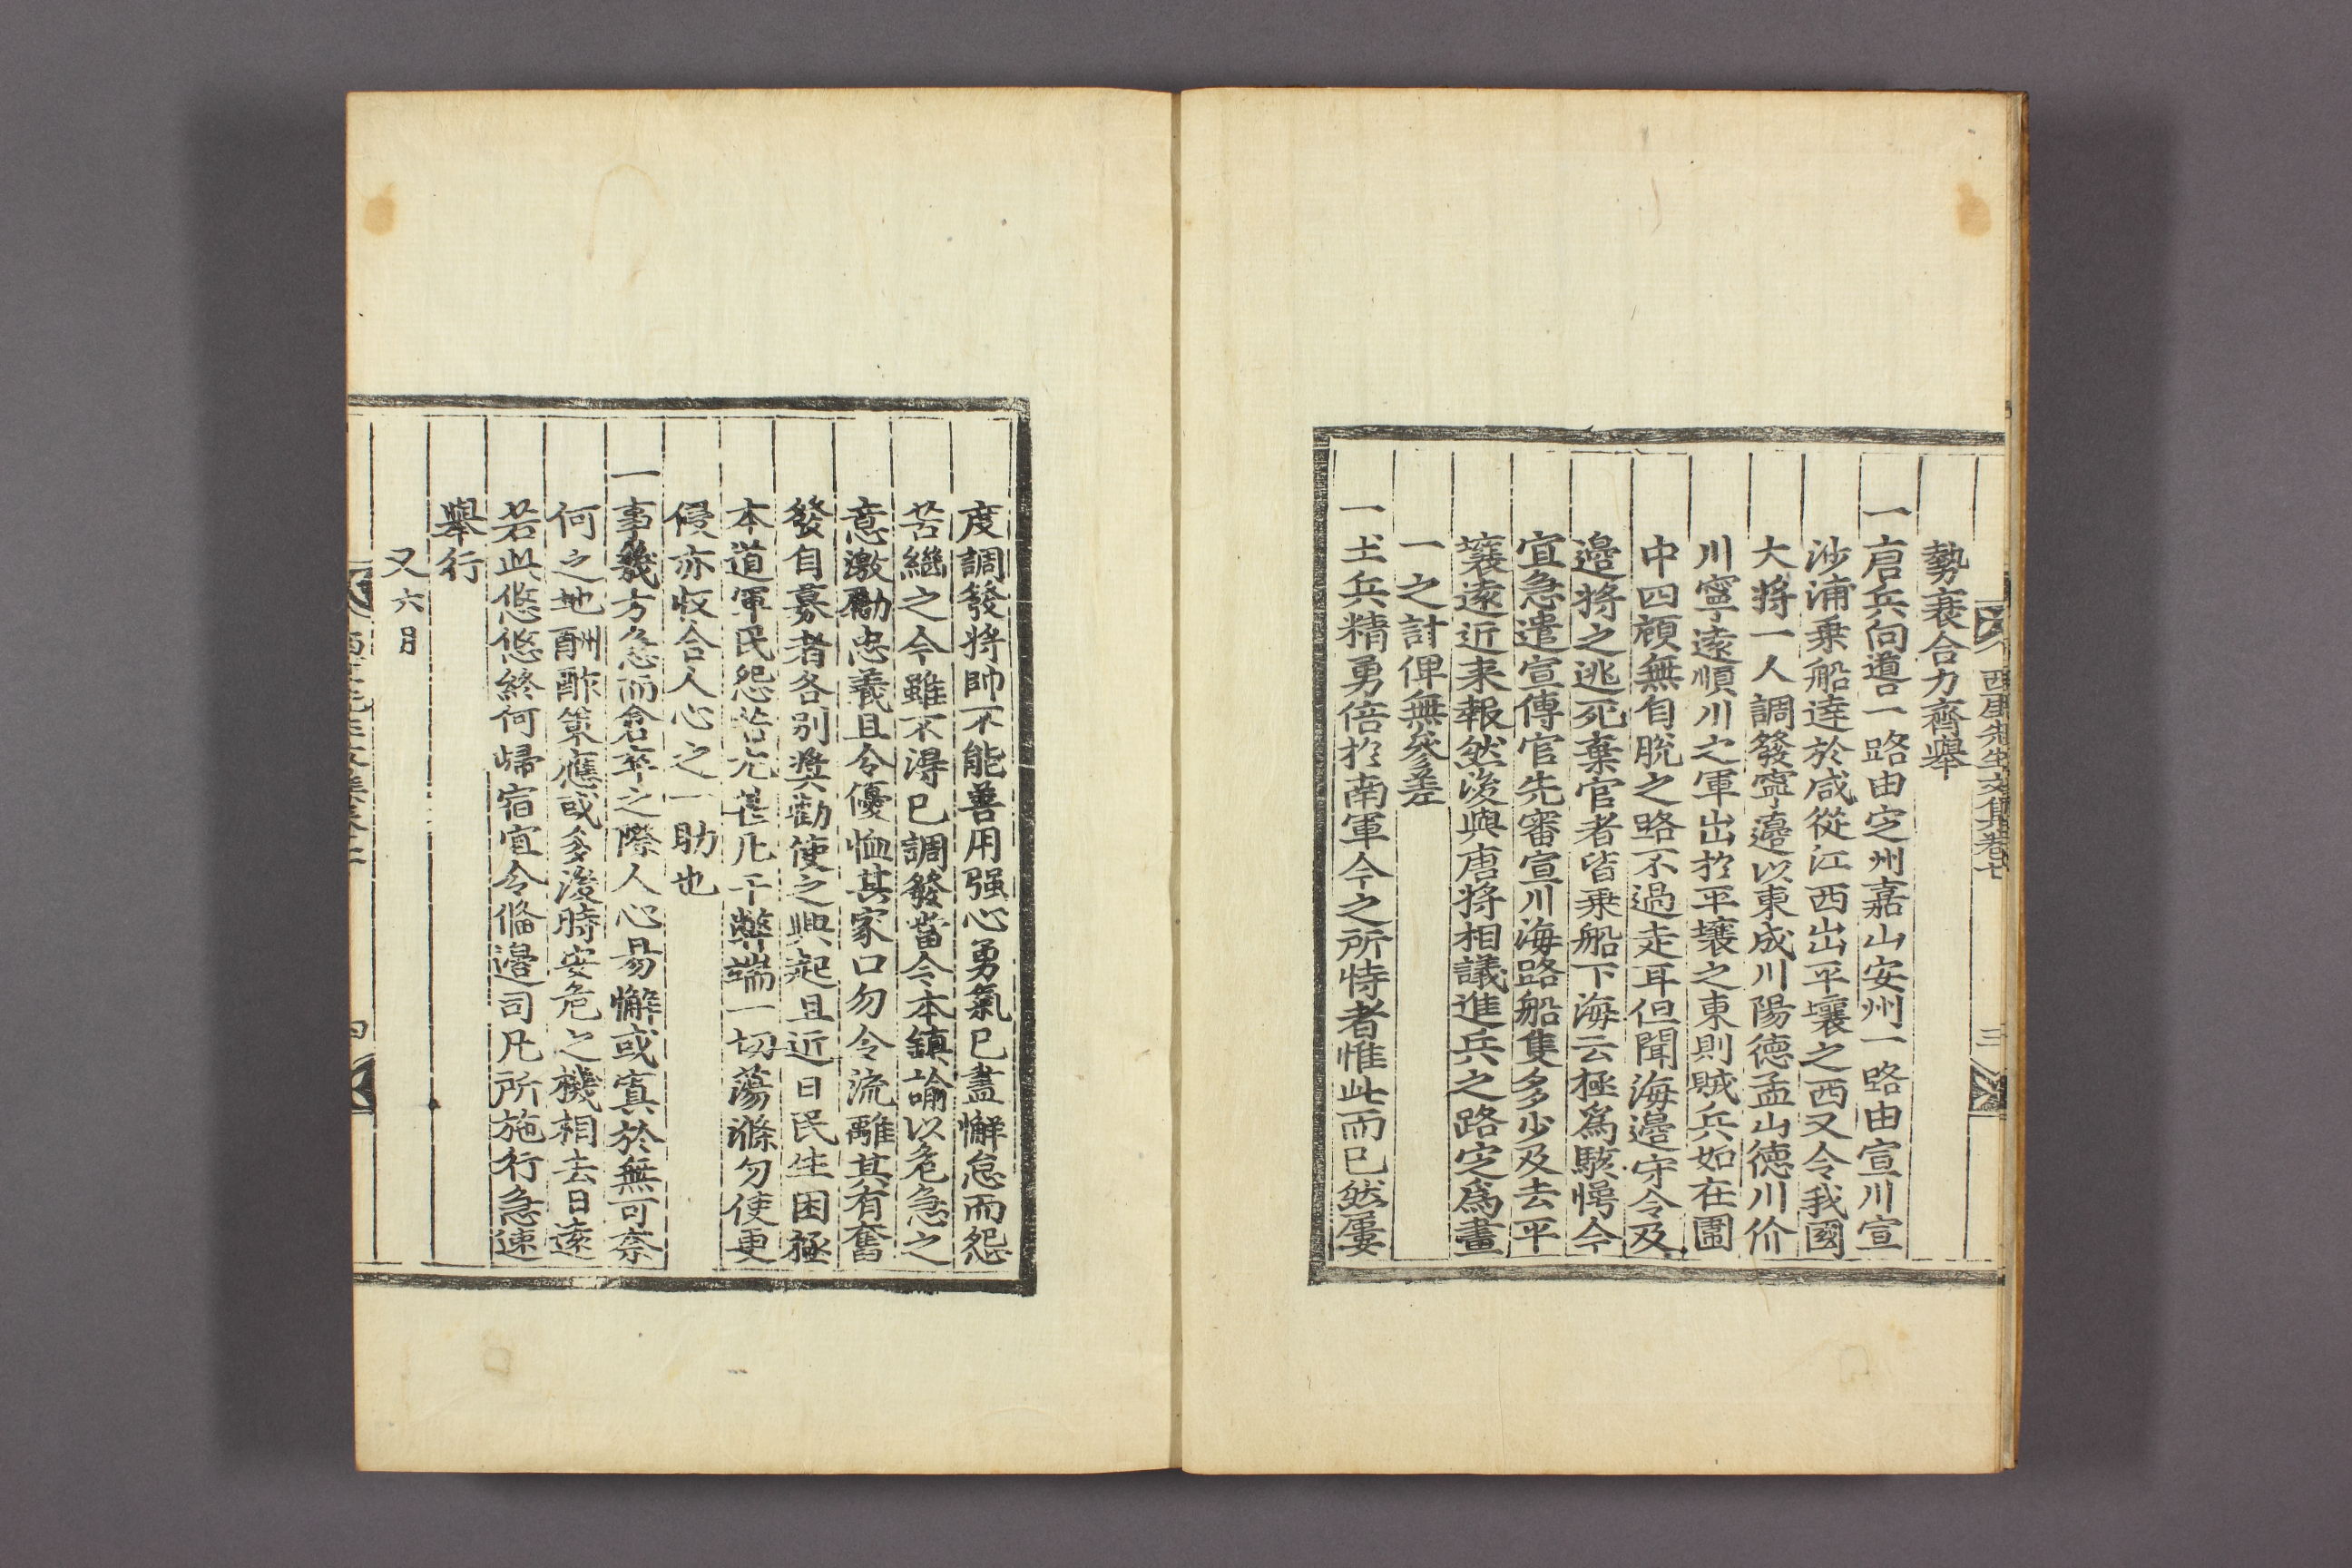 西厓先生文集卷七
三
勢衰合力齊舉
一唐兵向導一路由定州嘉山安州一路由宣川宣
沙浦乘船達於咸從江西出平壤之西又令我國
大將一人調發寧邊以東成川陽德孟山德川价
川寧遠順川之軍出於平壤之東則賊兵如在圍
中四顧無自脫之路不過走耳但聞海邊守令及
邊將之逃死棄官者皆乘船下海云極爲駭愕今
宜急遣宣傳官先審宣川海路船隻多少及去平
壤遠近来報然後與唐將相議進兵之路定爲畫
一之計俾無參差
一土兵精勇倍於南軍今之所恃者惟此而已然屢
度調發將帥不能善用强心勇氣已盡懈怠而怨
苦繼之今雖不得已調發當令本鎮諭以危急之
意激勵忠義且令優恤其家口勿令流離其有奮
發自募者各别奬勸使之興起且近日民生困極
本道軍民怨苦尤甚凡干弊端一切蕩滌勿使更
侵亦收合人心之一助也
一事幾方急而倉卒之際人心易懈或寘於無可奈
何之地酬酢策應或多後時安危之機相去日遠
若此悠悠終何歸宿宜令備邊司凡所施行急速
舉行
又六月